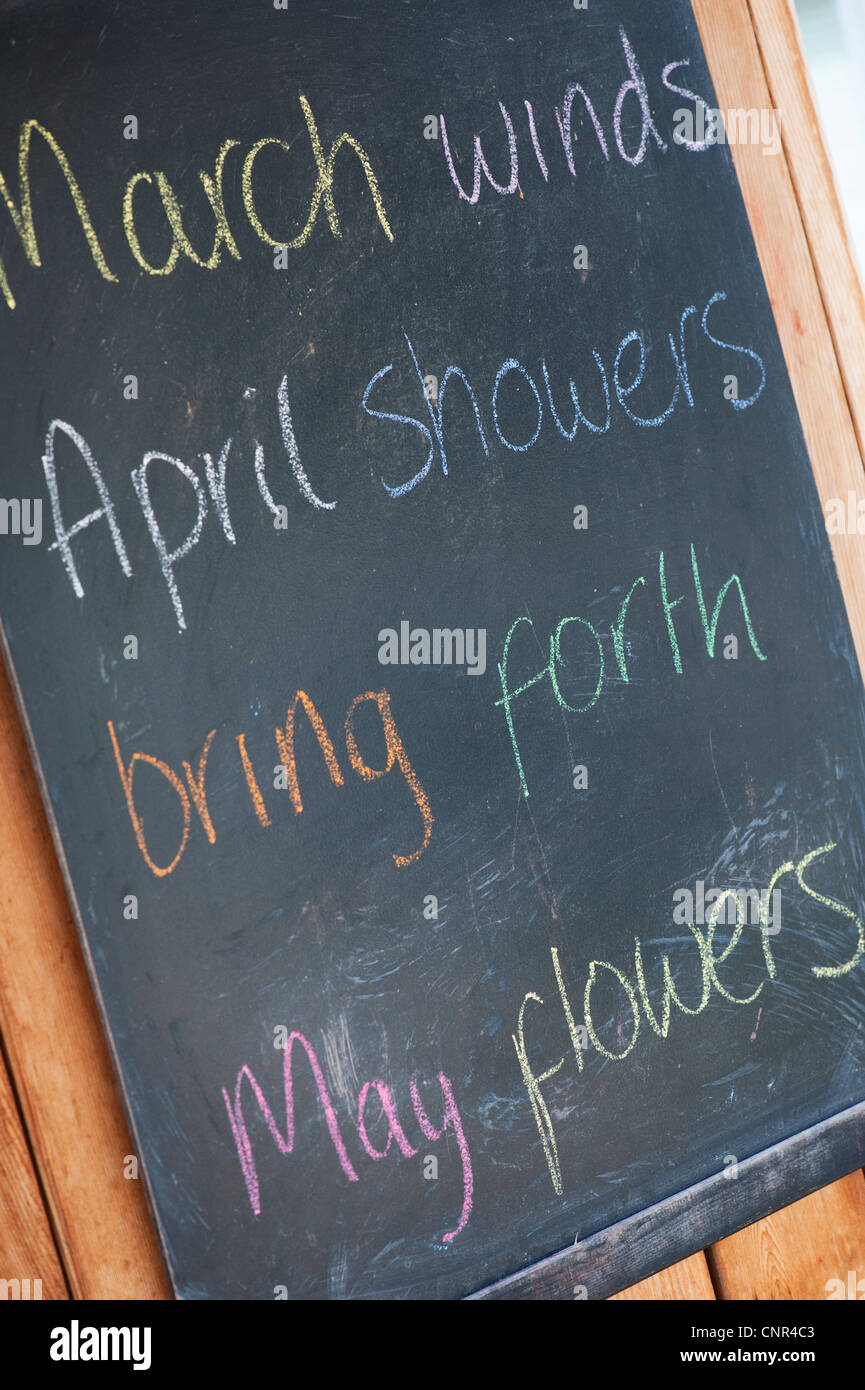 March winds
April showers
bring forth
May flowers
alamy
alamy
Image ID: CNR4C3
www.alamy.com